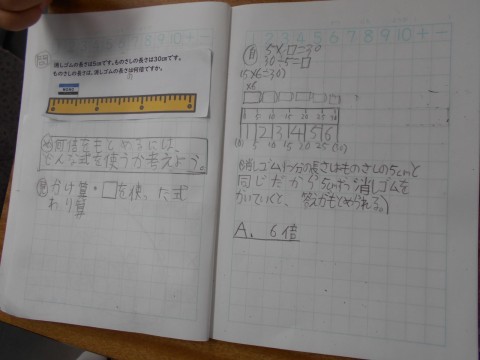 消しゴムの長さは5cmです。ものさしの長さは30cmです。
ものさしの長さは、消しゴムの長さの何倍ですか。
何倍をもとめるには、
どんな式を使うか考えよう。
かけ算・□を使った式
わり算
1 2 3 4 5 6 7 8 9 10 + -
5×□=30
30÷5=□
(5×6=30)
×6
0 5 10 15 20 25 30
1 2 3 4 5 6
5 10 15 20 25
消しゴム1つ分の長さはものさしの5cmと
同じだから5cmずつ消しゴムを
かいていくと、答えがもとめられる。
A、6倍